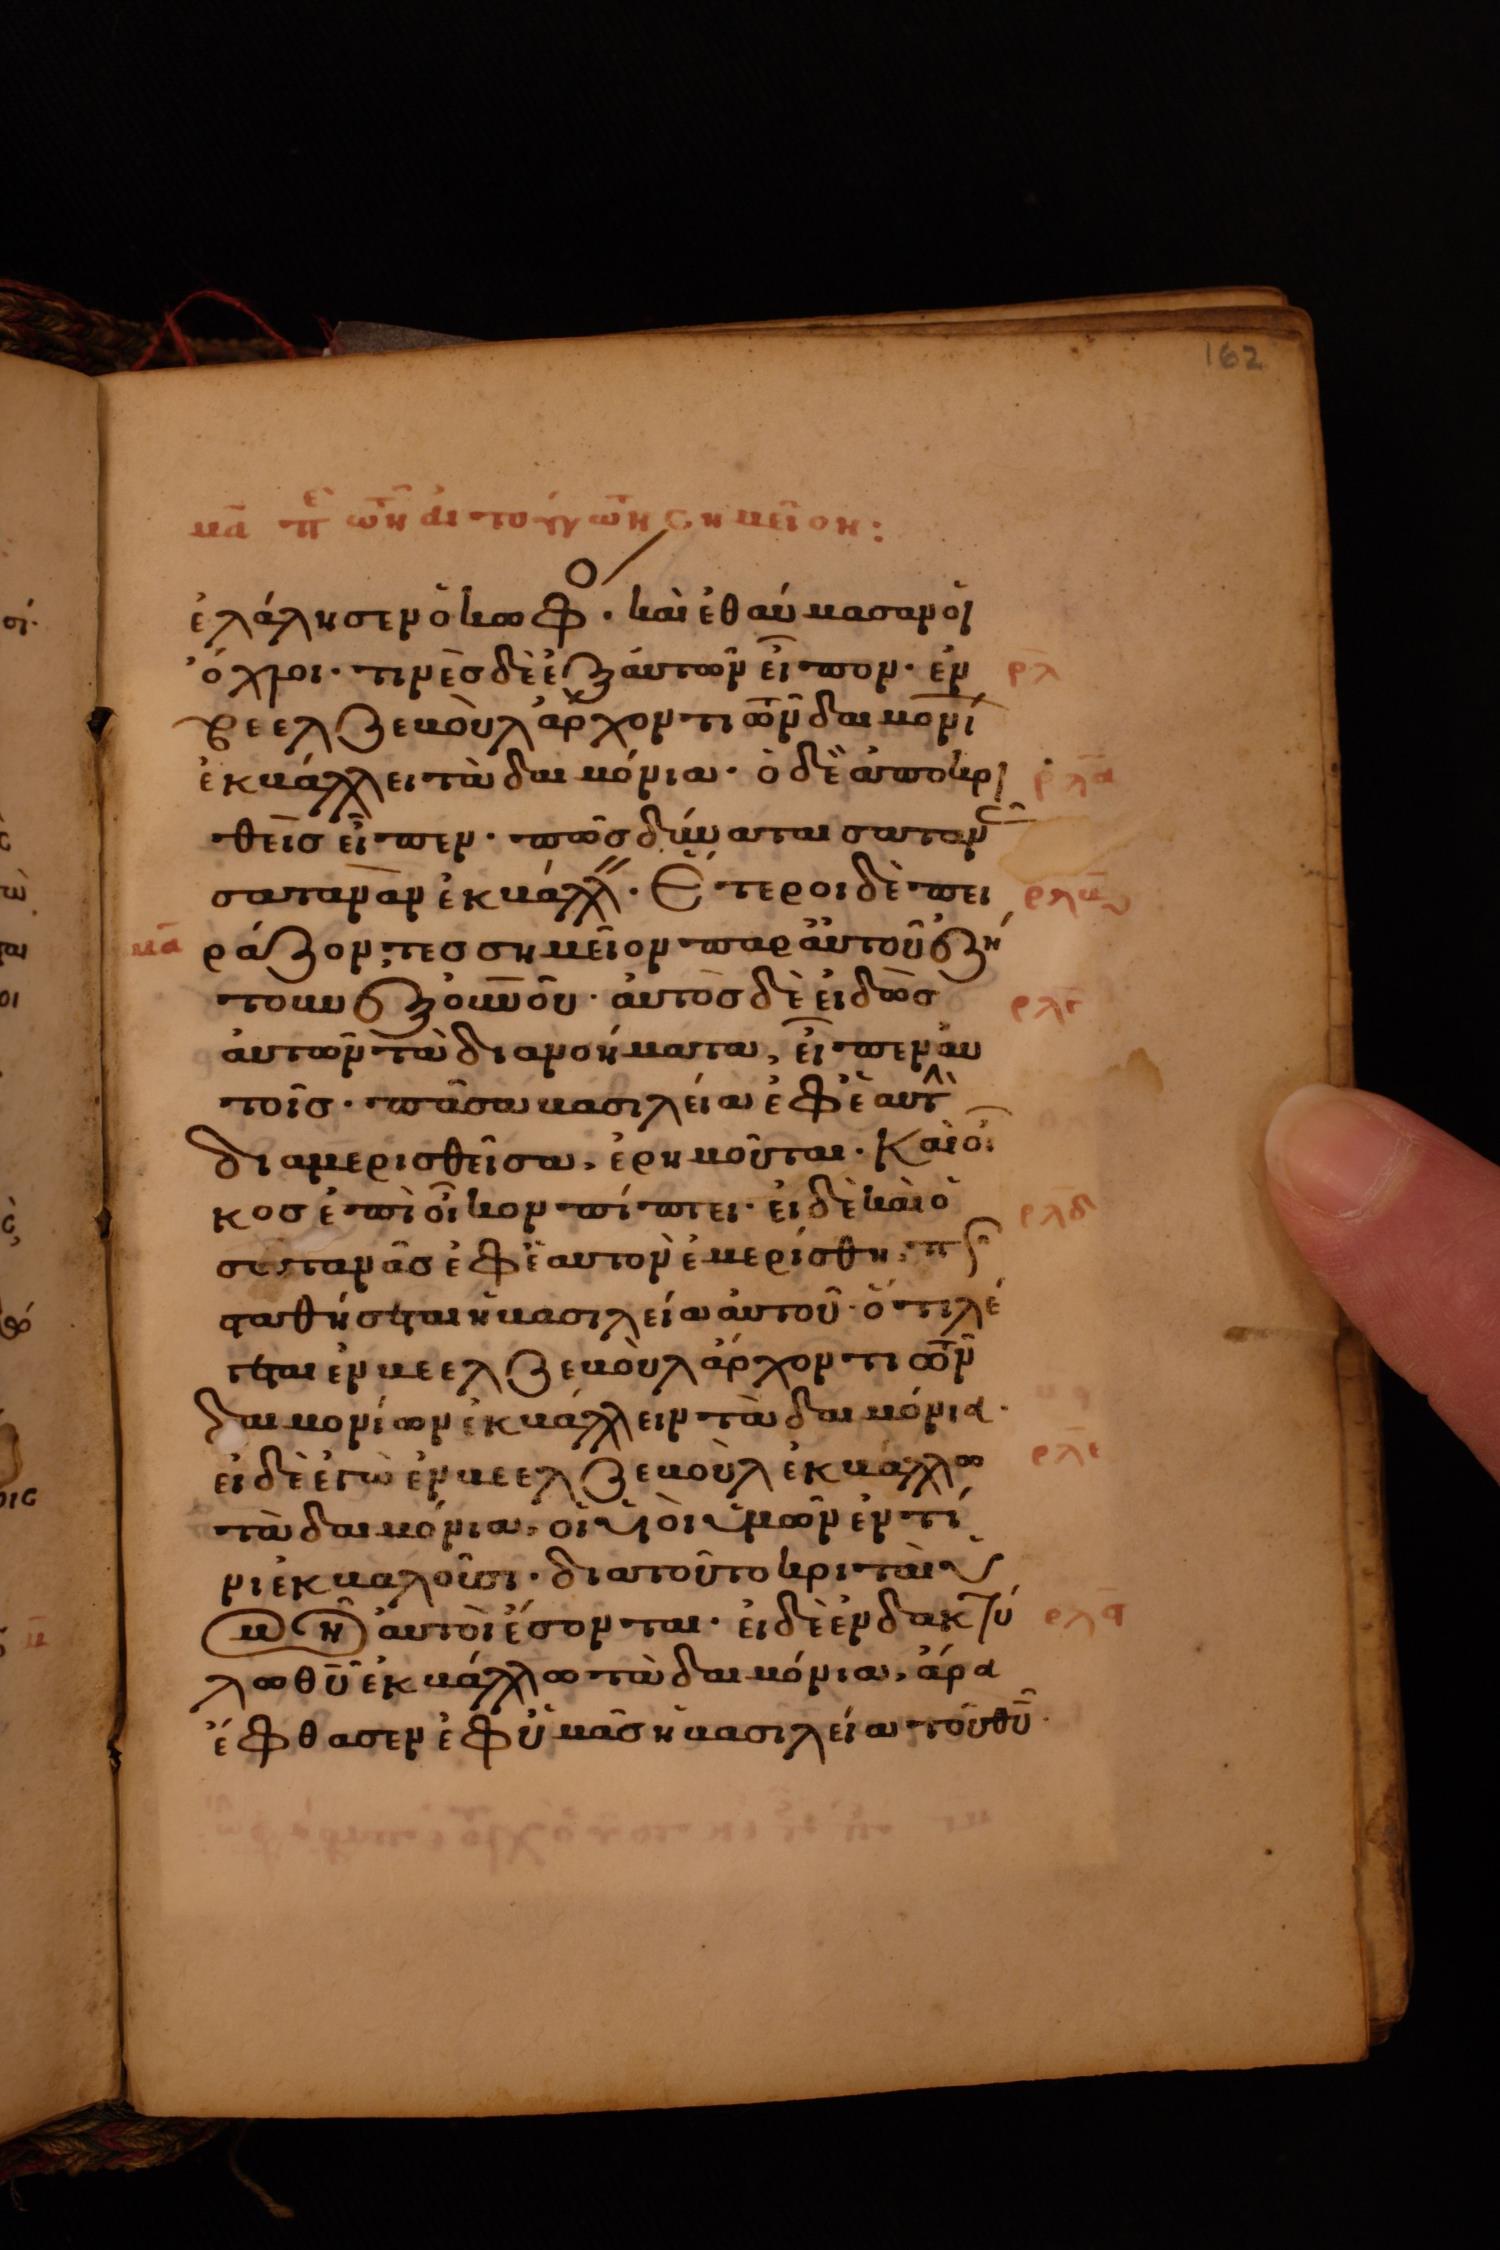 162
μα π̅ε̅ τῶν αἰτούντων σημεῖον:
ἐλάλησεν ὁ κωφ. καὶ ἐθαύμασαν οἱ
ὄχλοι. τινὲς δὲ ἐξ αυτῶν εἶπον. ἐν ρλ
βεελζεβοὺλ ἄρχοντι τῶν δαιμονί
ἐκβάλλει τὰ δαιμόνια. ὁ δὲ ἀποκρι ρλα
θεὶς εἶπεν. πῶς δύναται σαταν
σαταναν ἐκβάλλ. Ἕτεροι δὲ πει ρλβ
μα ράζοντες σημεῖον παρ αὐτοῦ ἐζή
τουν ἐξ οὐνοῦ. ἀυτὸς δὲ εἰδὼς ρλγ
ἀυτῶν τὰ διανοήματα, εἶπεν ἀυ
τοῖς. πᾶσα βασιλεία ἐφ ἑαυτ
διαμερισθεῖσα, ἐρημοῦται. Καὶ οἶ
κος ἐπὶ οἶκον πίπτει. εἰ δὲ καὶ ὁ ρλδ
σατανᾶς ἐφ ἑαυτὸν ἐμερίσθη, πῶς
σταθήσεται ἡ βασιλεία ἀυτοῦ. ὅτι λέ
γεται ἐν βεελζεβοὺλ ἄρχοντι τῶν
δαιμονίων ἐκβάλλειν τὰ δαιμόνια.
εἰ δὲ ἐγὼ ἐν βεελζεβοὺλ ἐκβάλλω ρλε
τὰ δαιμόνια, οἱ υἱοὶ ὑμῶν ἐν τί
νι ἐκβαλοῦσι. διατοῦτο κριταὶ ὑ
μῶν ἀυτοὶ ἔσονται. εἰ δὲ ἐν δακτύ ρλϛ
λω θῦ ἐκβάλλω τὰ δαιμόνια, ἄρα
ἔφθασεν ἐφ ὑμᾶς ἡ βασιλεία τοῦ θῦ.